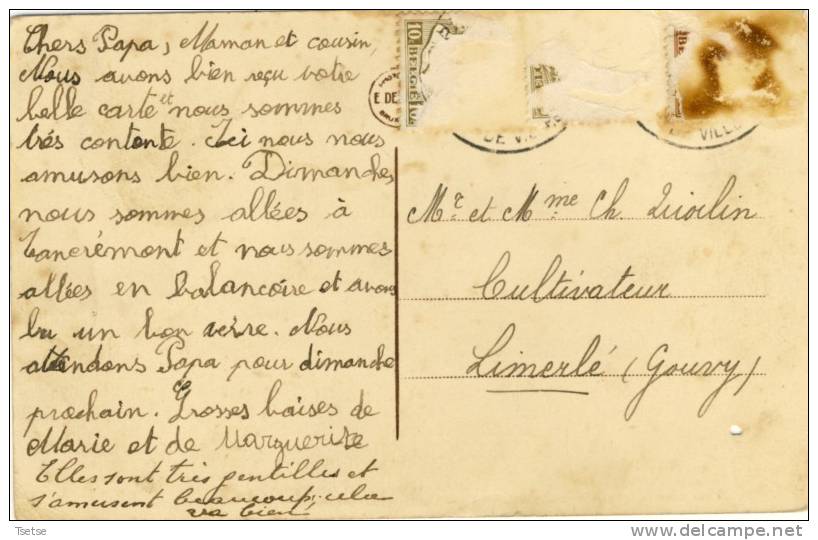 Chers Papa, Maman et cousin,
Nous avons bien reçu votre
belle carte et nous sommes
très contente. Ici nous nous
amusons bien. Dimanches
nous sommes allées à
Tancrémont et nous sommes
allées en balancoire et avons
bu un bon verre. Nous
attendons Papa pour dimanche
prochain. Grosses baises de
Marie et de Marguerite
Elles sont très gentilles et
s'amusent beaucoup; cela
va bien
10c BELGIË 10c
E DE
DE VI
VILLE
Mr et Mme Ch.
Cultivateur
Limerlé (Gouvy)
Tsetse
www.delcampe.net